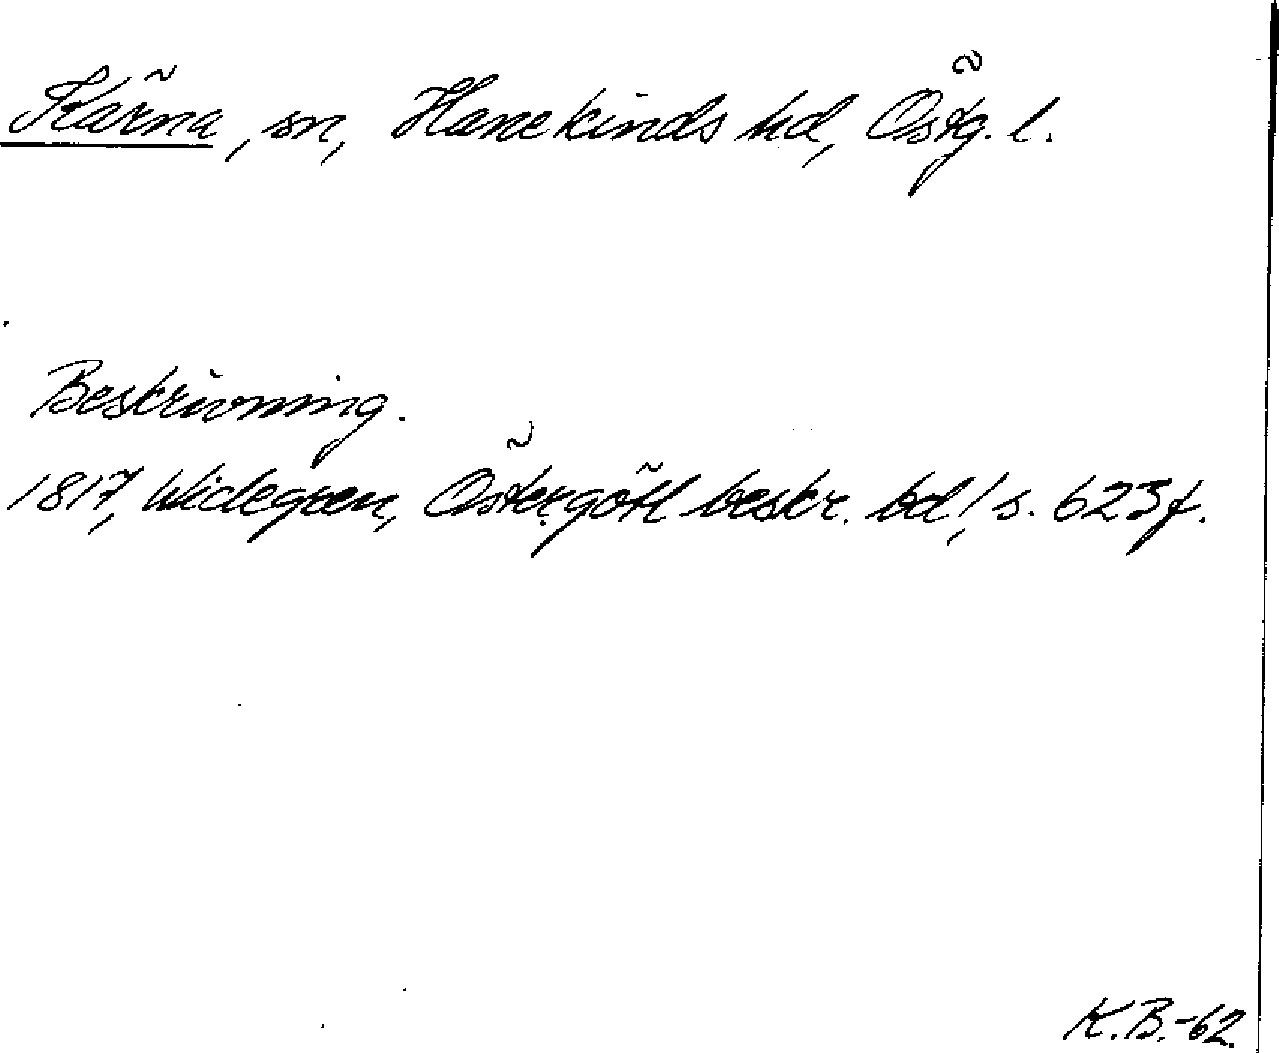 Kärna, sn, Hanekinds hd, Östg. l.
Beskrivning.
1817, Widegren, Östergötl beskr. bd 1, s. 623 f.
K.B.-62.